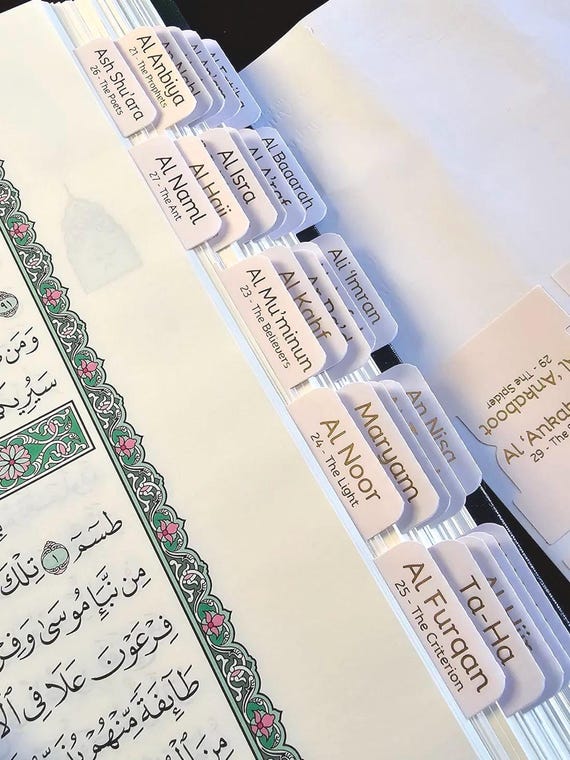 Ash Shu'ara
26 - The Poets
Al Anbiya
21 - The Prophets
An Nahl
Al Naml
27 - The Ant
Al Hajj
Al Isra
Al A'raf
Al Baqarah
Al Mu'minun
23 - The Believers
Al Kahf
Ali 'Imran
Al Noor
24 - The Light
Maryam
An Nisa
Al Furqan
25 - The Criterion
Ta-Ha
Al 'Ankaboot
29 - The Spider
٩١
وَمَن
سَيُرِيكُ
طسٓمٓ ١ تِلْكَ
مِن نَّبَإِ مُوسَىٰ وَفِرْ
فِرْعَوْنَ عَلَا فِى ٱلْأ
طَآئِفَةً مِّنْهُمْ يُذَ
مِنَ